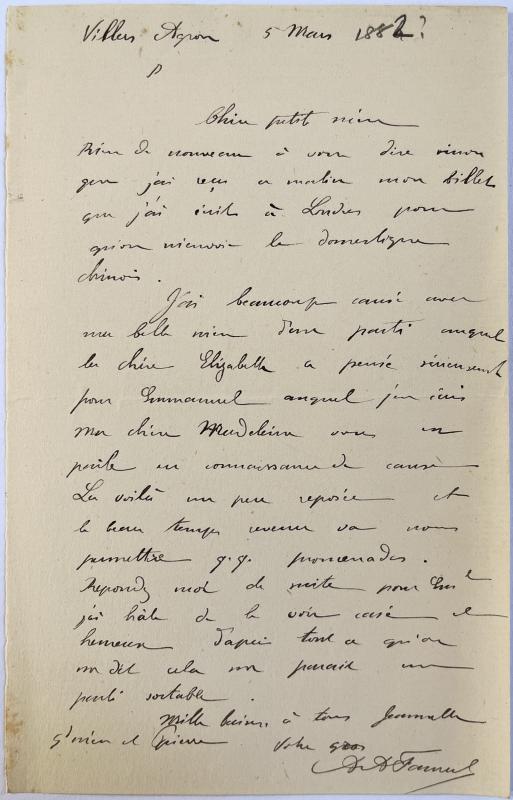 Villers Agron 5 Mars 1882?
Chère petite mère
Rien de nouveau à vous dire sinon
que j'ai reçu ce matin mon billet
que j'ai écrit à Londres pour
qu'on m'envoie le domestique
chinois.
J'ai beaucoup causé avec
ma belle mère d'un parti auquel
la chère Elizabeth a pensé
pour Emmanuel auquel j'en
Ma chère Madeleine vous en
parle en connaissance de cause
La voilà un peu reposée et
le beau temps revenu va nous
permettre q.q. promenades.
Repondez moi de suite pour Emel
j'ai hâte de le voir casé et
heureux d'après tout ce qu'on
me dit cela me parait un
parti sortable.
Mille baisers à tous
et Pierre Votre gros